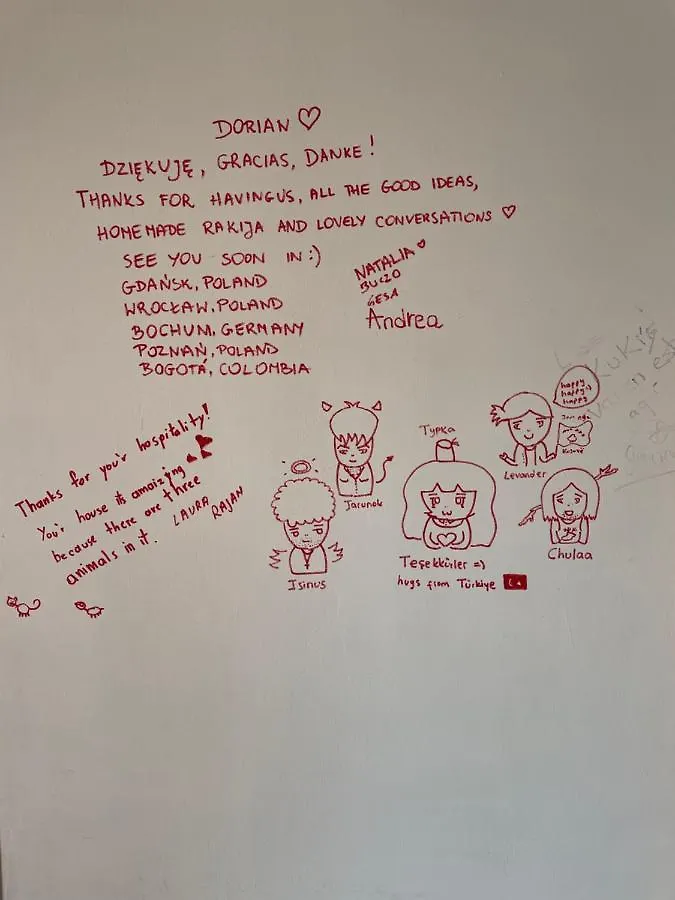 DORIAN ♡
DZIĘKUJĘ, GRACIAS, DANKE!
THANKS FOR HAVING US, ALL THE GOOD IDEAS,
HOMEMADE RAKIJA AND LOVELY CONVERSATIONS ♡
SEE YOU SOON IN :)
GDAŃSK, POLAND
WROCŁAW, POLAND
BOCHUM, GERMANY
POZNAŃ, POLAND
BOGOTÁ, COLOMBIA
NATALIA ♥
BUCZO
GESA
Andrea
Thanks for you'r hospitality!
You'r house is amaizing
because there are three
animals in it.
LAURA
RAJAN
Isinus
Jarunok
Typka
Teşekkürler =)
hugs from Türkiye
happy
happy
happy
Levander
Chulaa